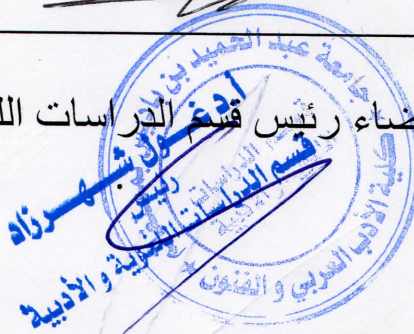 ضاء رئيس قسم الدراسات الل
جامعة عبد الحميد بن
كلية الأدب العربي و الفنون
أ.د غول شهرزاد
رئيس
قسم الدراسات اللغوية و الأدبية